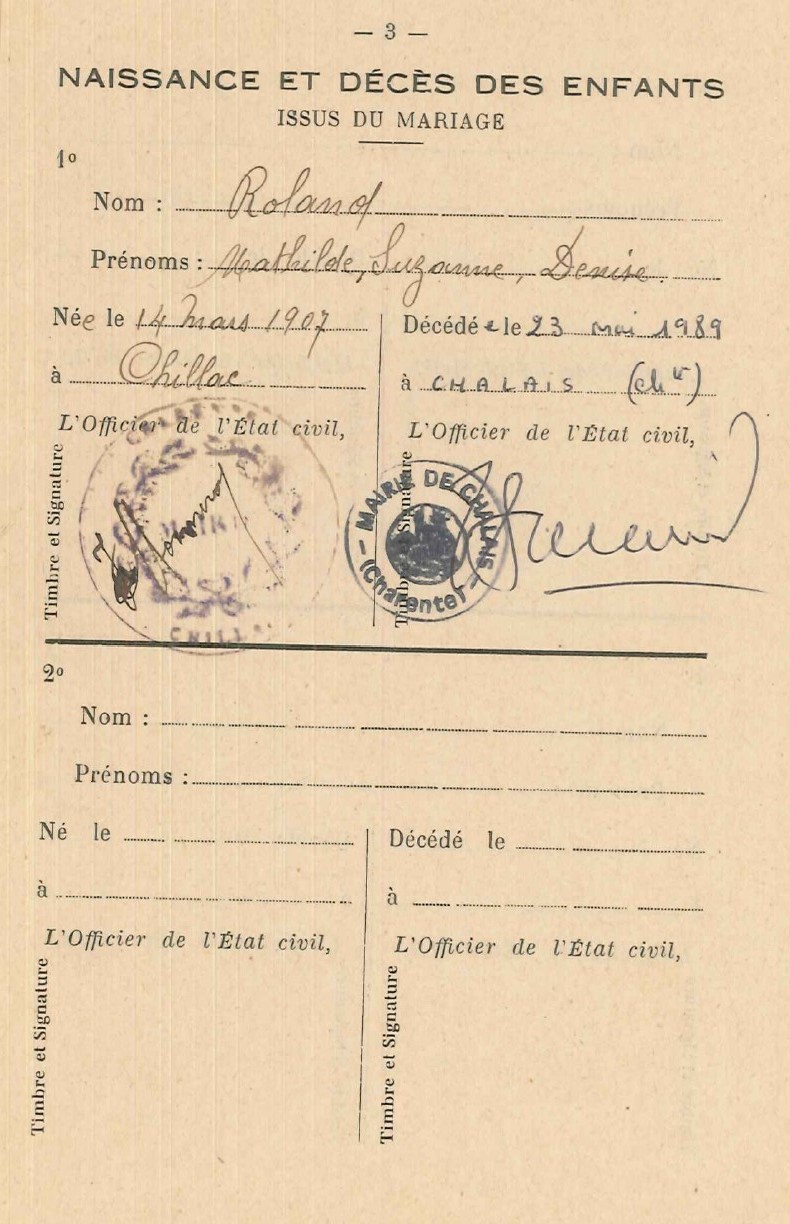 — 3 —
NAISSANCE ET DÉCÈS DES ENFANTS
ISSUS DU MARIAGE
1º
Nom : Roland
Prénoms : Mathilde, Suzanne, Denise.
Née le 14 mars 1907
à Chillac
L'Officier de l'État civil,
Timbre et Signature
MAIRIE
CHILL
Décédée le 23 mai 1989
à CHALAIS (chte)
L'Officier de l'État civil,
Timbre et Signature
MAIRIE DE CHALAIS
(Charente)
2º
Nom :
Prénoms :
Né le
à
L'Officier de l'État civil,
Timbre et Signature
Décédé le
à
L'Officier de l'État civil,
Timbre et Signature